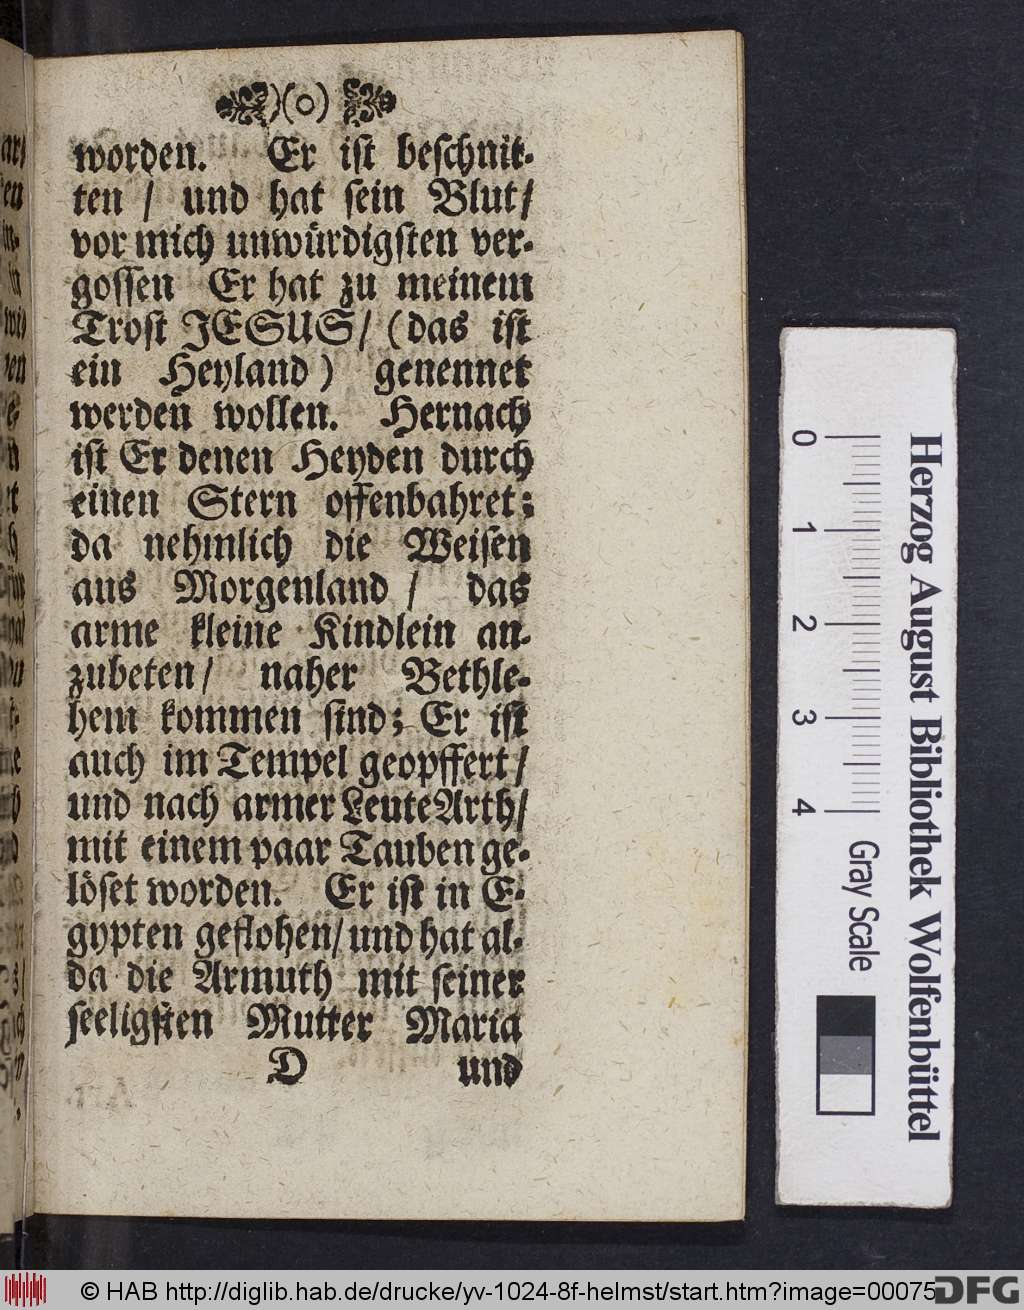 )(o)
worden. Er iſt beſchnit-
ten / und hat ſein Blut/
vor mich unwürdigſten ver-
goſſen Er hat zu meinem
Troſt JESUS/ (das iſt
ein Heyland) genennet
werden wollen. Hernach
iſt Er denen Heyden durch
einen Stern offenbahret;
da nehmlich die Weiſen
aus Morgenland / das
arme kleine Kindlein an-
zubeten/ naher Bethle-
hem kommen ſind; Er iſt
auch im Tempel geopffert/
und nach armer Leute Arth/
mit einem paar Tauben ge-
löſet worden. Er iſt in E-
gypten geflohen/ und hat al-
da die Armuth mit ſeiner
ſeeligſten Mutter Maria
D und
Herzog August Bibliothek Wolfenbüttel
0 1 2 3 4 Gray Scale
© HAB http://diglib.hab.de/drucke/yv-1024-8f-helmst/start.htm?image=00075
DFG